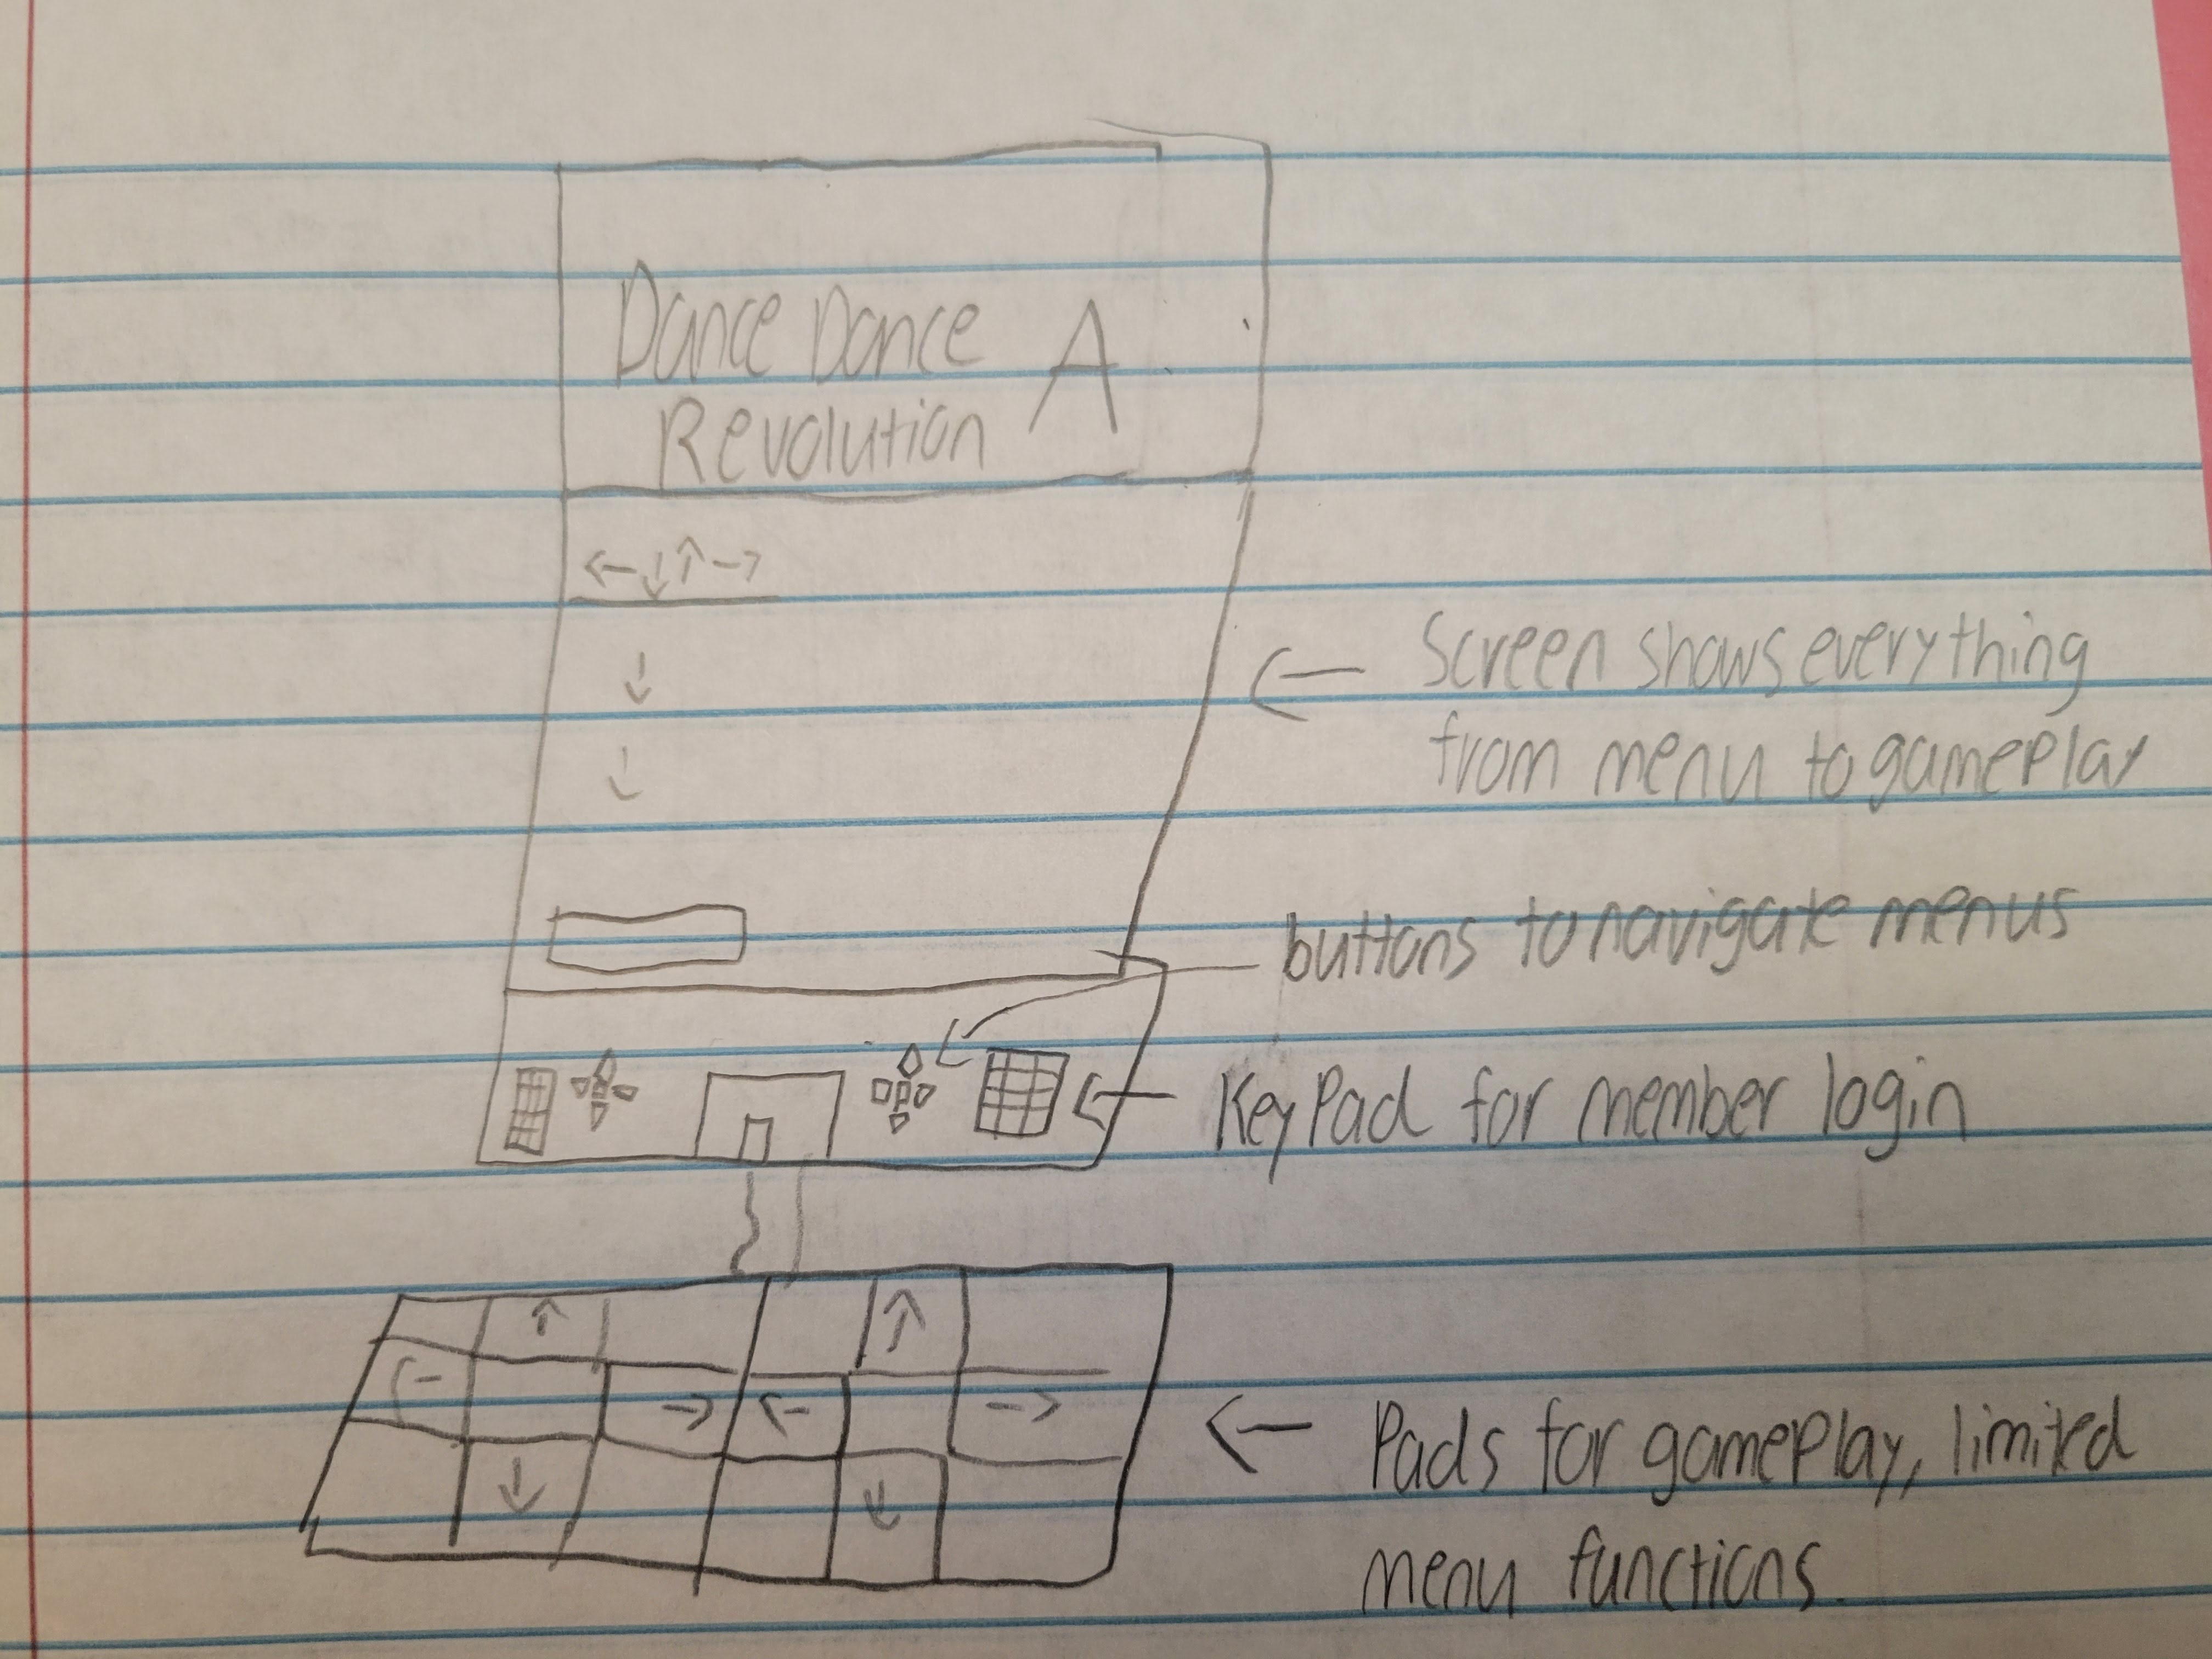 Dance Dance
Revolution A
← ↓ ↑ →
↓
↓
Screen shows everything
from menu to gameplay
buttons to navigate menus
KeyPad for member login
↑ ↑
← → ← →
↓ ↓
Pads for gameplay, limited
menu functions.